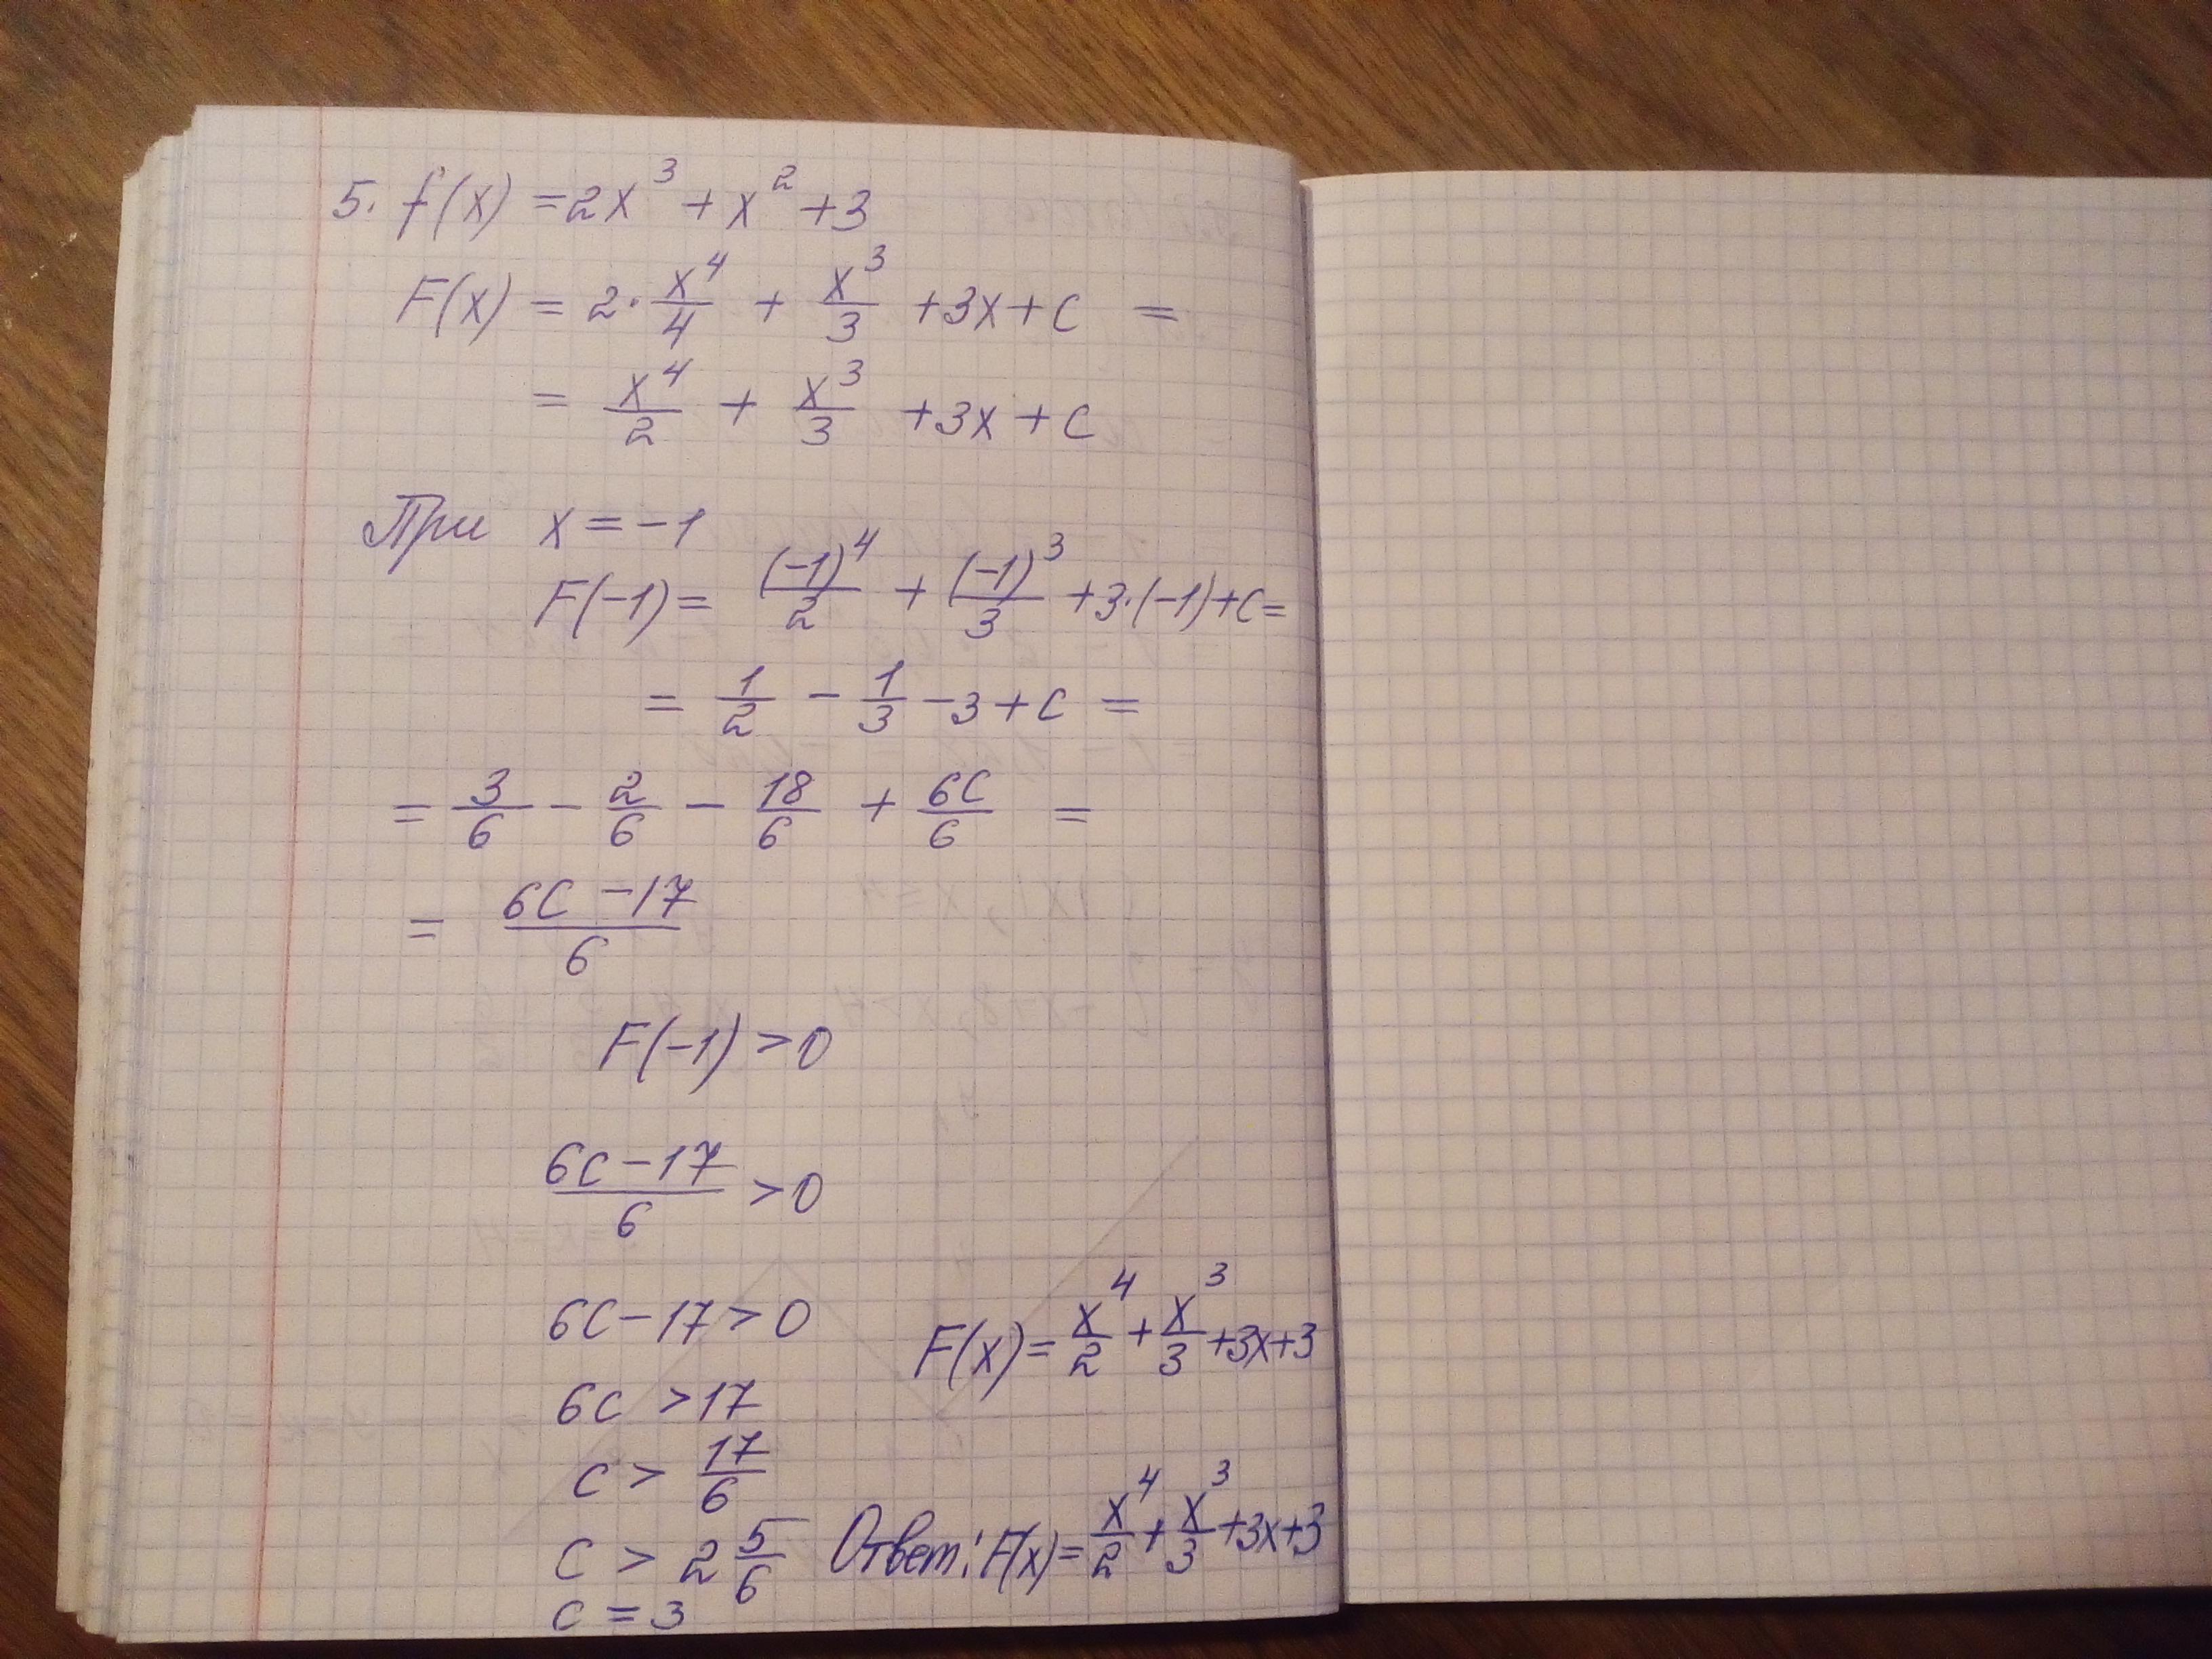 5. f(x) = 2x³ + x² + 3
F(x) = 2 · x⁴/4 + x³/3 + 3x + C =
= x⁴/2 + x³/3 + 3x + C
При x = -1
F(-1) = (-1)⁴/2 + (-1)³/3 + 3·(-1) + C =
= 1/2 - 1/3 - 3 + C =
= 3/6 - 2/6 - 18/6 + 6C/6 =
= (6C - 17)/6
F(-1) > 0
(6C - 17)/6 > 0
6C - 17 > 0
6C > 17
C > 17/6
C > 2 5/6
C = 3
F(x) = x⁴/2 + x³/3 + 3x + 3
Ответ: F(x) = x⁴/2 + x³/3 + 3x + 3